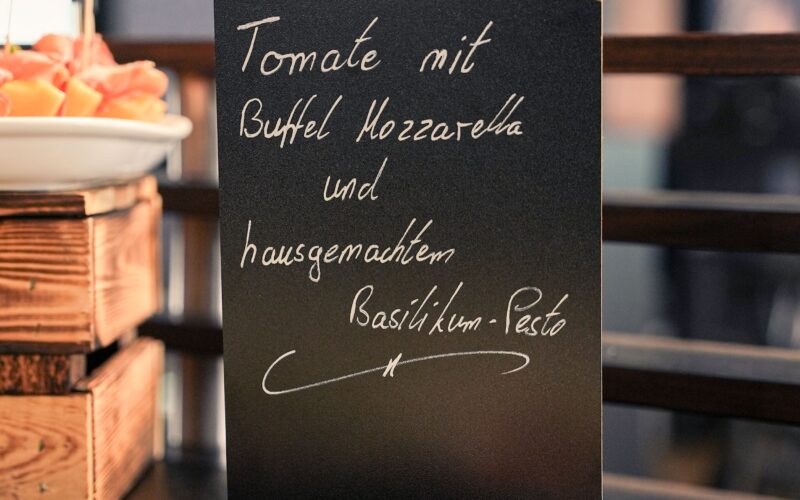 Tomate mit
Büffel Mozzarella
und
hausgemachtem
Basilikum-Pesto